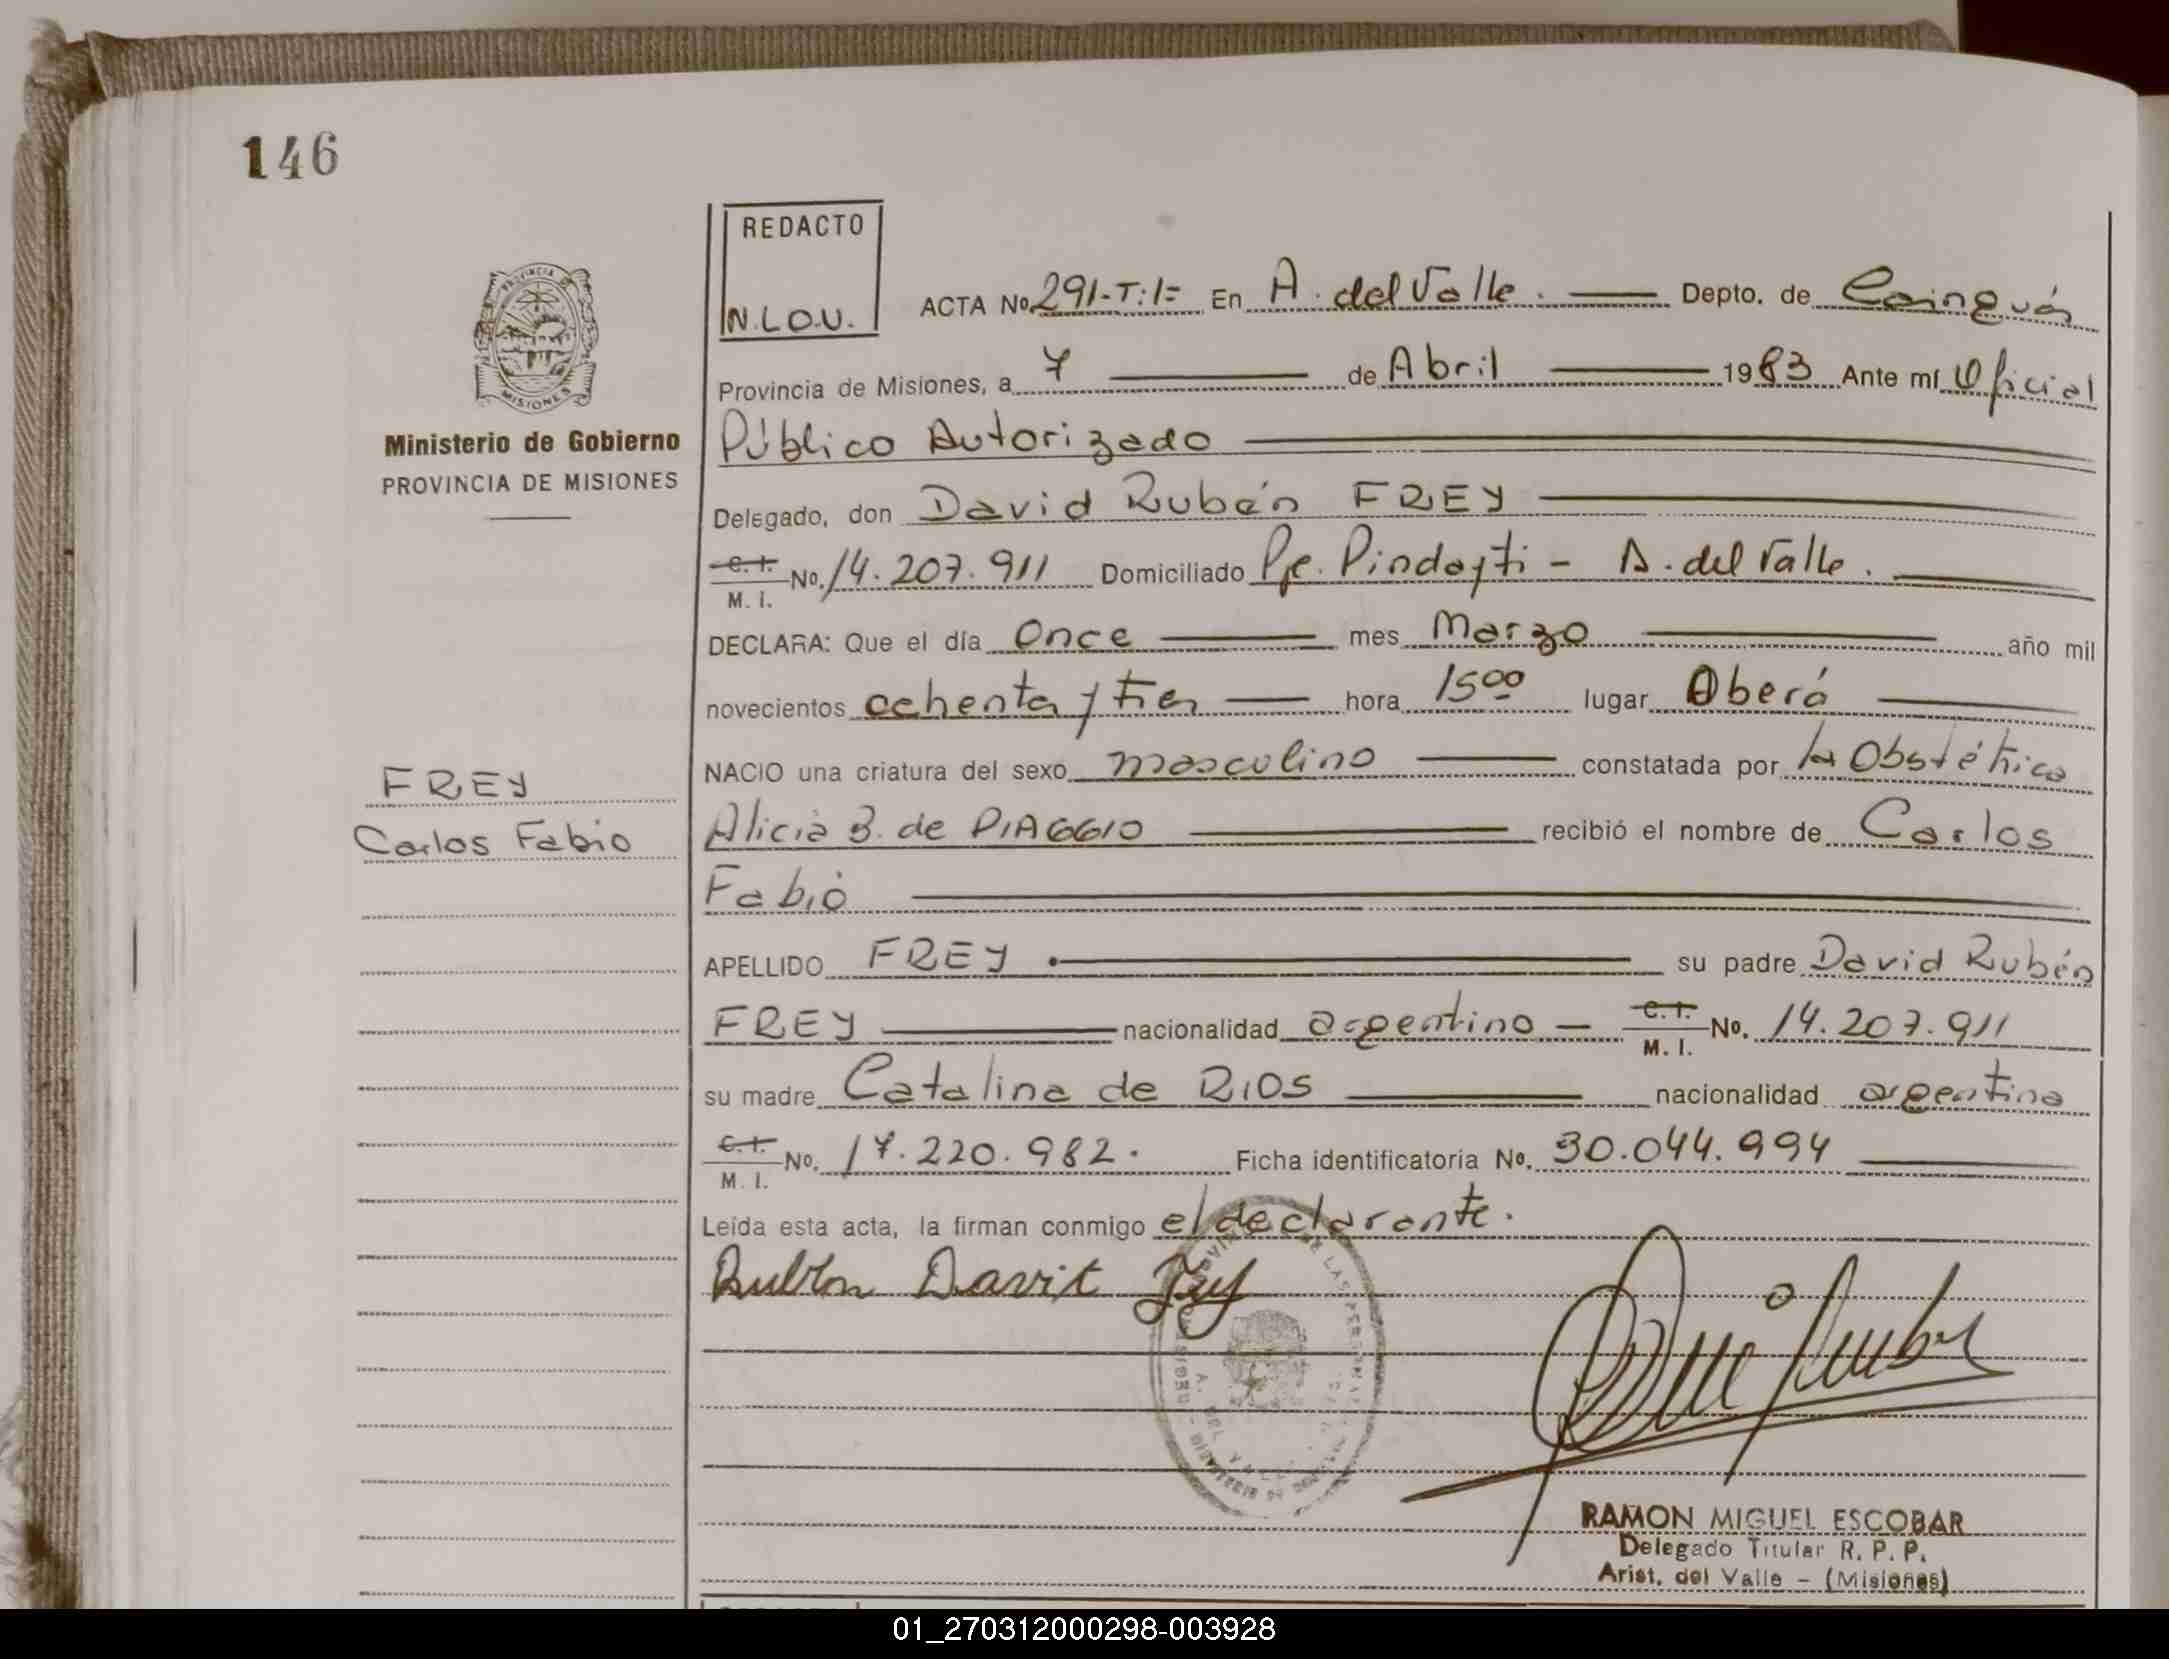 146
REDACTO
N.L.O.U.
PROVINCIA
MISIONES
Ministerio de Gobierno
PROVINCIA DE MISIONES
ACTA No 291-T:1= En A. del Valle. Depto. de Cainguás
Provincia de Misiones, a 7 de Abril 1983 Ante mí Oficial
Público Autorizado
Delegado, don David Rubén FREY
C.I. M. I. No. 14.207.911 Domiciliado Pje. Pindayti - A. del Valle.
DECLARA: Que el día Once mes Marzo año mil
novecientos ochenta y tres hora 15 00 lugar Oberá
NACIO una criatura del sexo masculino constatada por la Obstétrica
FREY
Carlos Fabio
Alicia B. de PIAGGIO recibió el nombre de Carlos
Fabio
APELLIDO FREY su padre David Rubén
FREY nacionalidad argentino - C.I. M. I. No. 14.207.911
su madre Catalina de RIOS nacionalidad argentina
C.I. M. I. No. 17.220.982. Ficha identificatoria No. 30.044.994
Leída esta acta, la firman conmigo el declarante.
Rubén Davit Frey
RAMON MIGUEL ESCOBAR
Delegado Titular R. P. P.
Arist. del Valle - (Misiones)
01_270312000298-003928